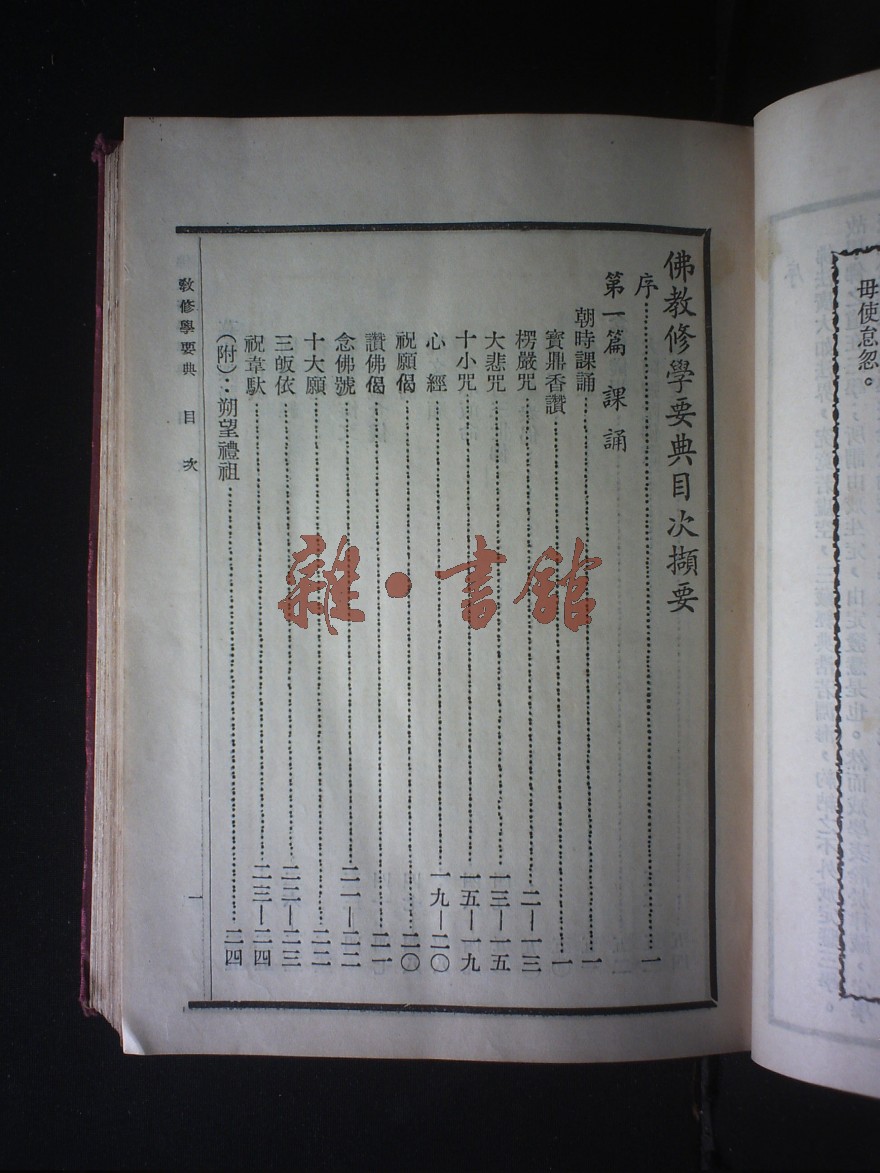 毋使怠忽。
佛教修學要典目次擷要
序⋯⋯一
第一篇 課誦
朝時課誦⋯⋯一
寶鼎香讚⋯⋯一
楞嚴咒⋯⋯二—一三
大悲咒⋯⋯一三—一五
十小咒⋯⋯一五—一九
心經⋯⋯一九—二〇
祝願偈⋯⋯二〇
讚佛偈⋯⋯二一
念佛號⋯⋯二一—二二
十大願⋯⋯二二
三皈依⋯⋯二二—二三
祝韋馱⋯⋯二三—二四
(附)：朔望禮祖⋯⋯二四
教修學要典 目次 一
雜·書館